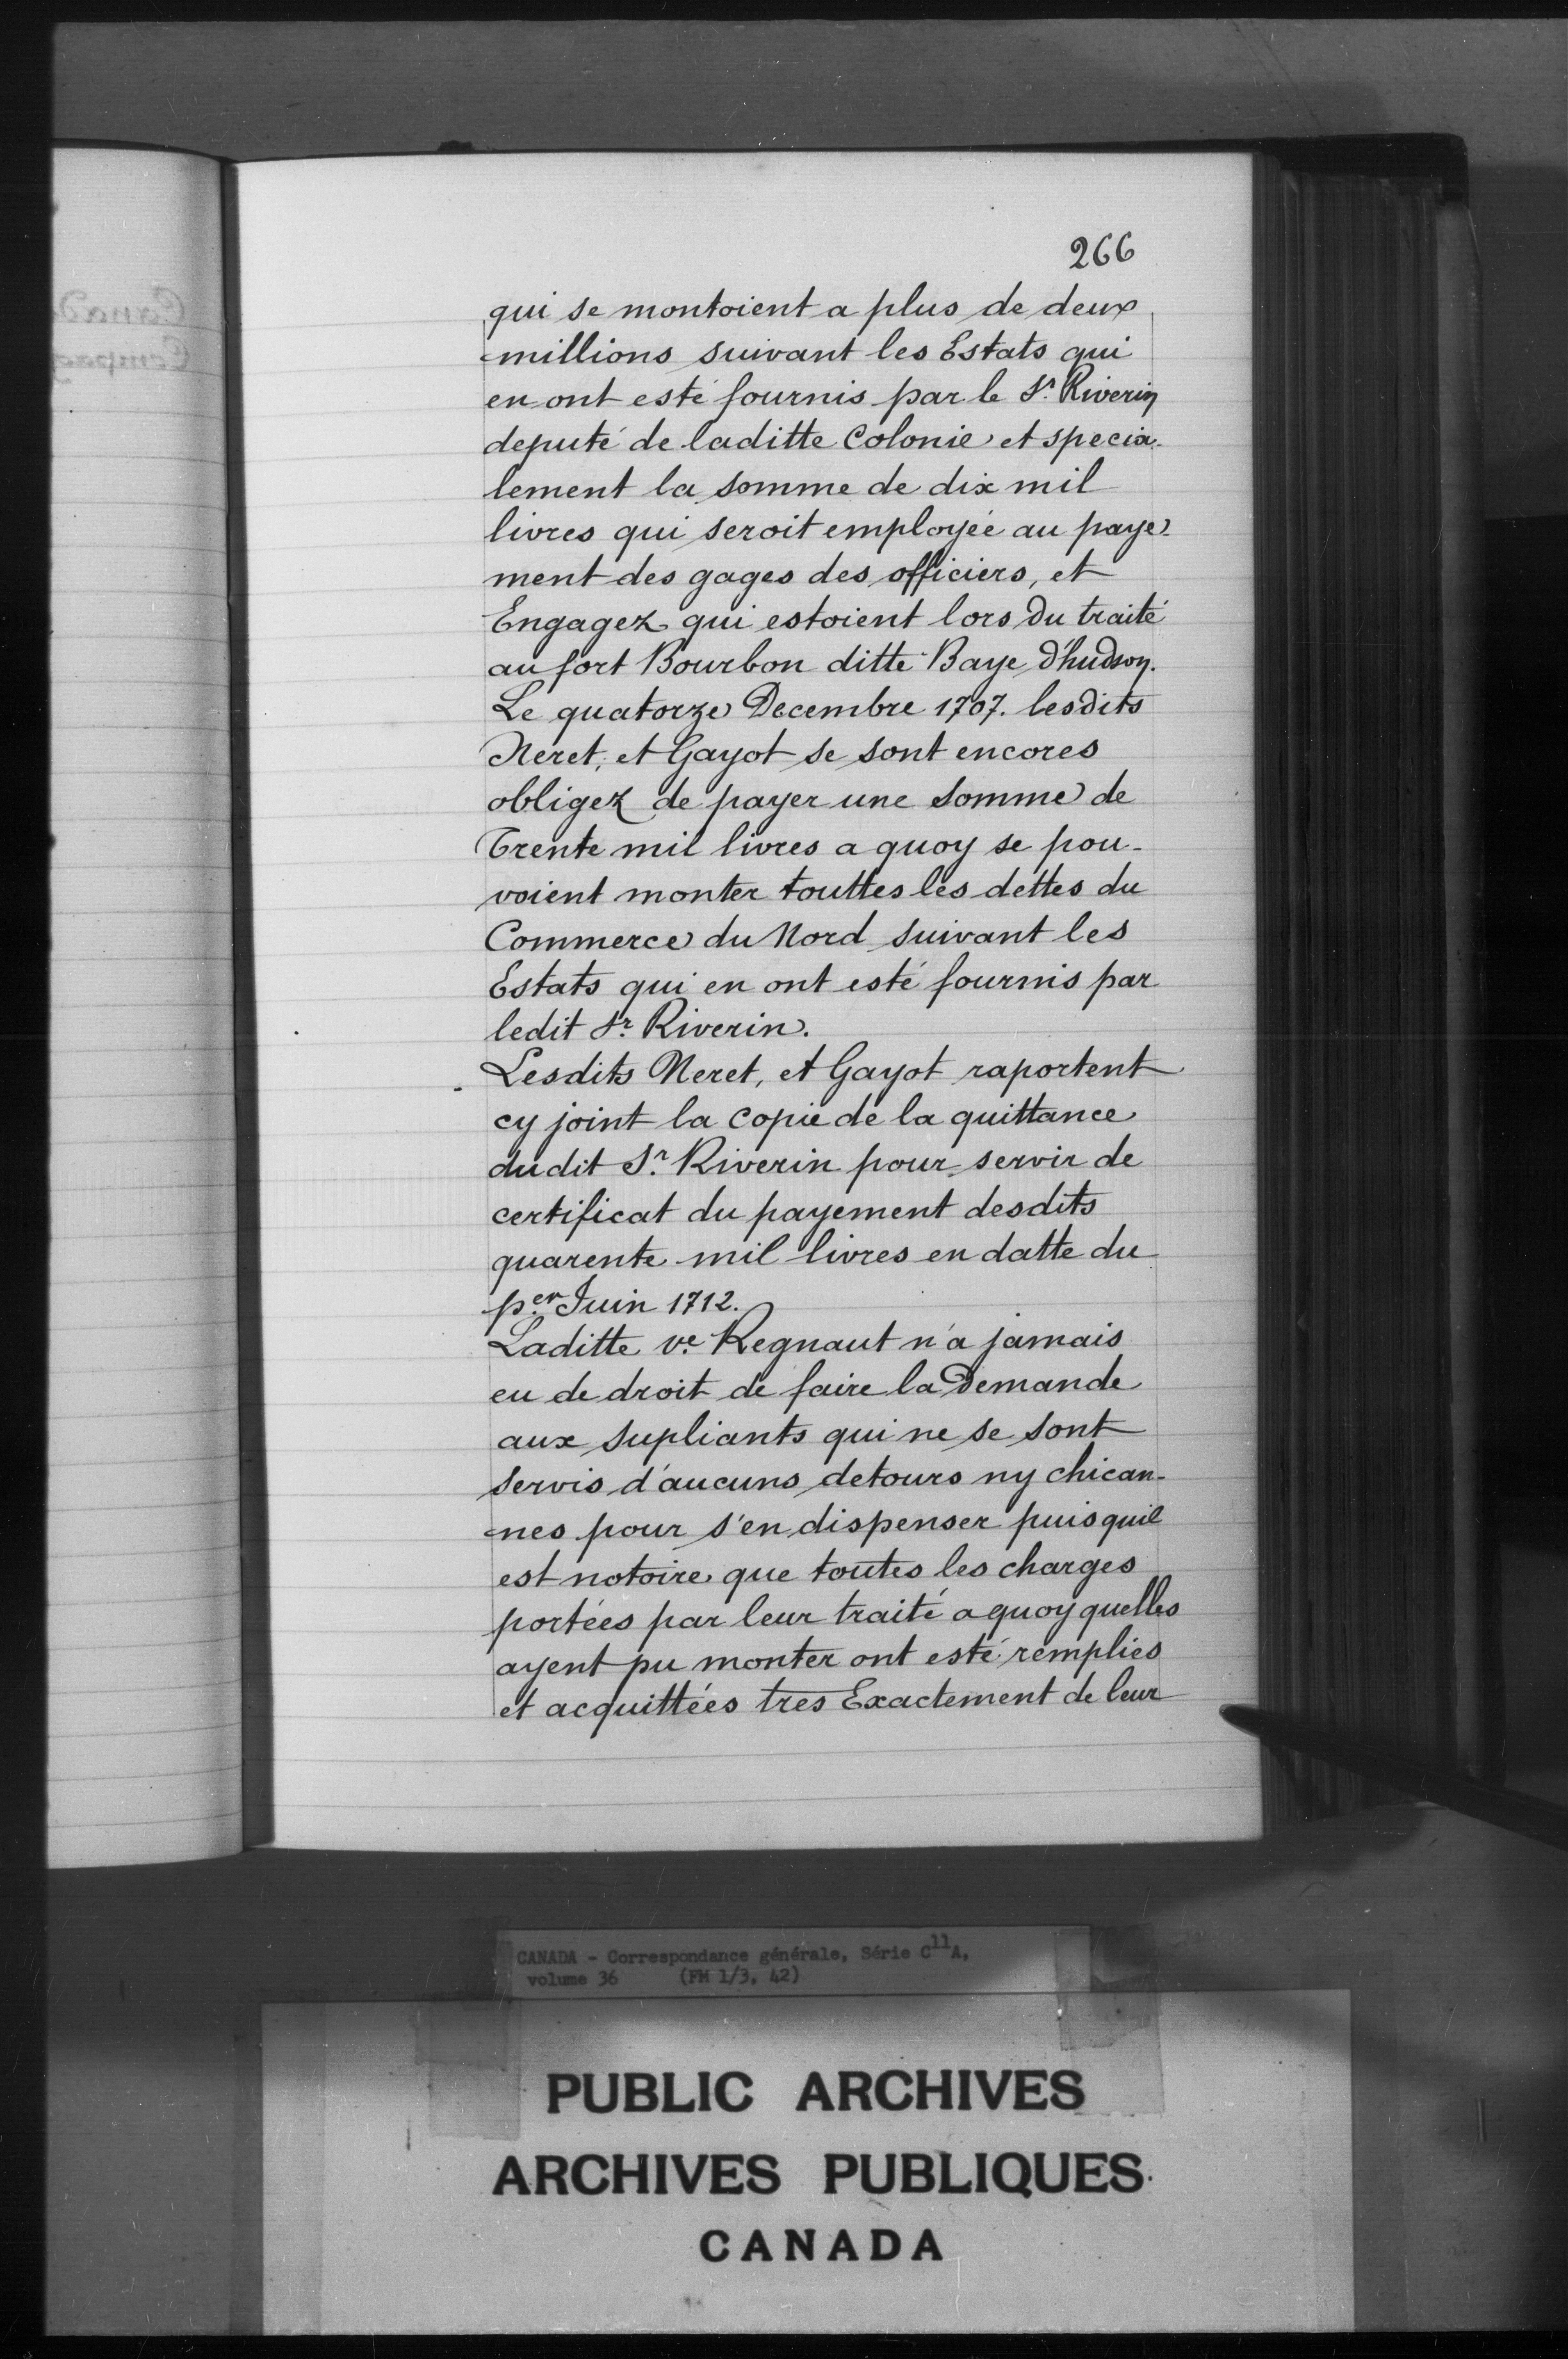 266
qui se montoient a plus de deux
millions suivant les Estats qui
en ont esté fournis par le Sr. Riverin
deputé de laditte Colonie et specia-
lement la somme de dix mil
livres qui seroit employée au paye-
ment des gages des officiers, et
Engagez qui estoient lors du traité
au fort Bourbon ditte Baye d'hudson.
Le quatorze Decembre 1707. lesdits
Neret, et Gayot se sont encores
obligez de payer une somme de
Trente mil livres a quoy se pou-
voient monter touttes les dettes du
Commerce du Nord suivant les
Estats qui en ont esté fournis par
ledit Sr. Riverin.
Lesdits Neret, et Gayot raportent
cy joint la copie de la quittance
dudit Sr. Riverin pour servir de
certificat du payement desdits
quarente mil livres en datte du
per. Juin 1712.
Laditte ve. Regnaut n'a jamais
eu de droit de faire la Demande
aux supliants qui ne se sont
servis d'aucuns detours ny chican-
nes pour s'en dispenser puisquil
est notoire que toutes les charges
portées par leur traité a quoy quelles
ayent pu monter ont esté remplies
et acquittées tres Exactement de leur
CANADA - Correspondance générale, Série C11A,
volume 36 (FM 1/3, 42)
PUBLIC ARCHIVES
ARCHIVES PUBLIQUES
CANADA